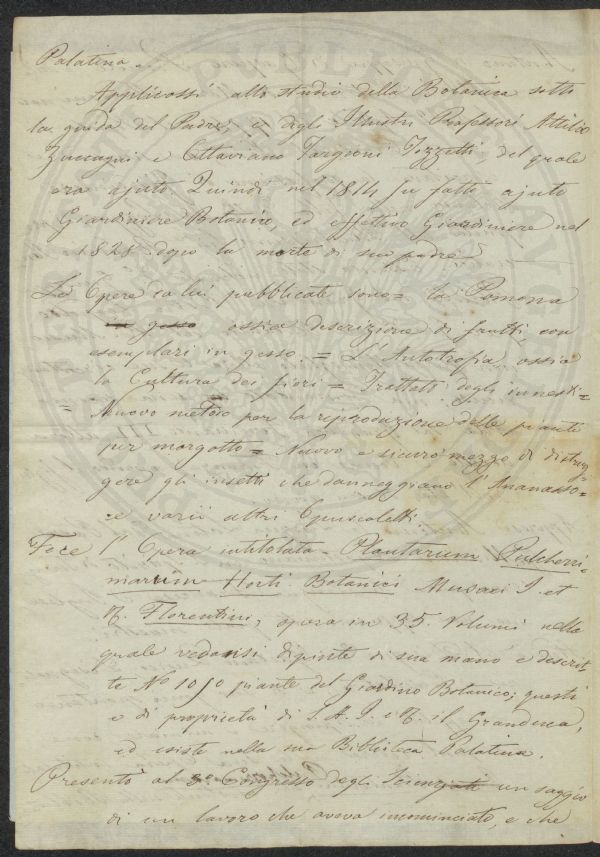 Palatina.
Applicossi allo studio della Botanica sotto
la guida del Padre, e degli Illustri Professori Attilio
Zuccagni e Ottaviano Targioni Tozzetti del quale
era ajuto. Quindi nel 1814 fu fatto ajuto
Giardiniere Botanico, ed effettivo Giardiniere nel
1828 dopo la morte di suo padre
Le Opere da lui pubblicate sono= la Pomona
in gesso ossia descrizione di frutti con
esemplari in gesso. = L'Autotrofia ossia
la Cultura dei fiori = Trattato degli innesti=
= Nuovo metodo per la riproduzione delle piante
per margotto = Nuovo e sicuro mezzo di distrug=
gere gli insetti che danneggiano l'Ananasso=
e varii altri Opuscoletti
Fece l'Opera intitolata - Plantarum Pulcherri=
marum Horti Botanici Musaei I. et
R. Florentini, opera in 35. Volumi nella
quale vedonsi dipinte di sua mano e descrit=
te No 1050 piante del Giardino Botanico; questi
è di proprietà di S. A. I. e R. il Granduca,
ed esiste nella sua Biblioteca Palatina.
Presentò al 3o Congresso degli Scienziati un saggio
di un lavoro che aveva incominciato, e che